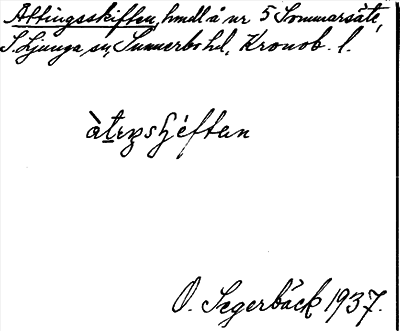 Altingsskiften, hmdl å nr 5 Sommarsäte,
S. Ljunga sn, Sunnerbo hd, Kronob. l.
O. Segerbäck 1937.